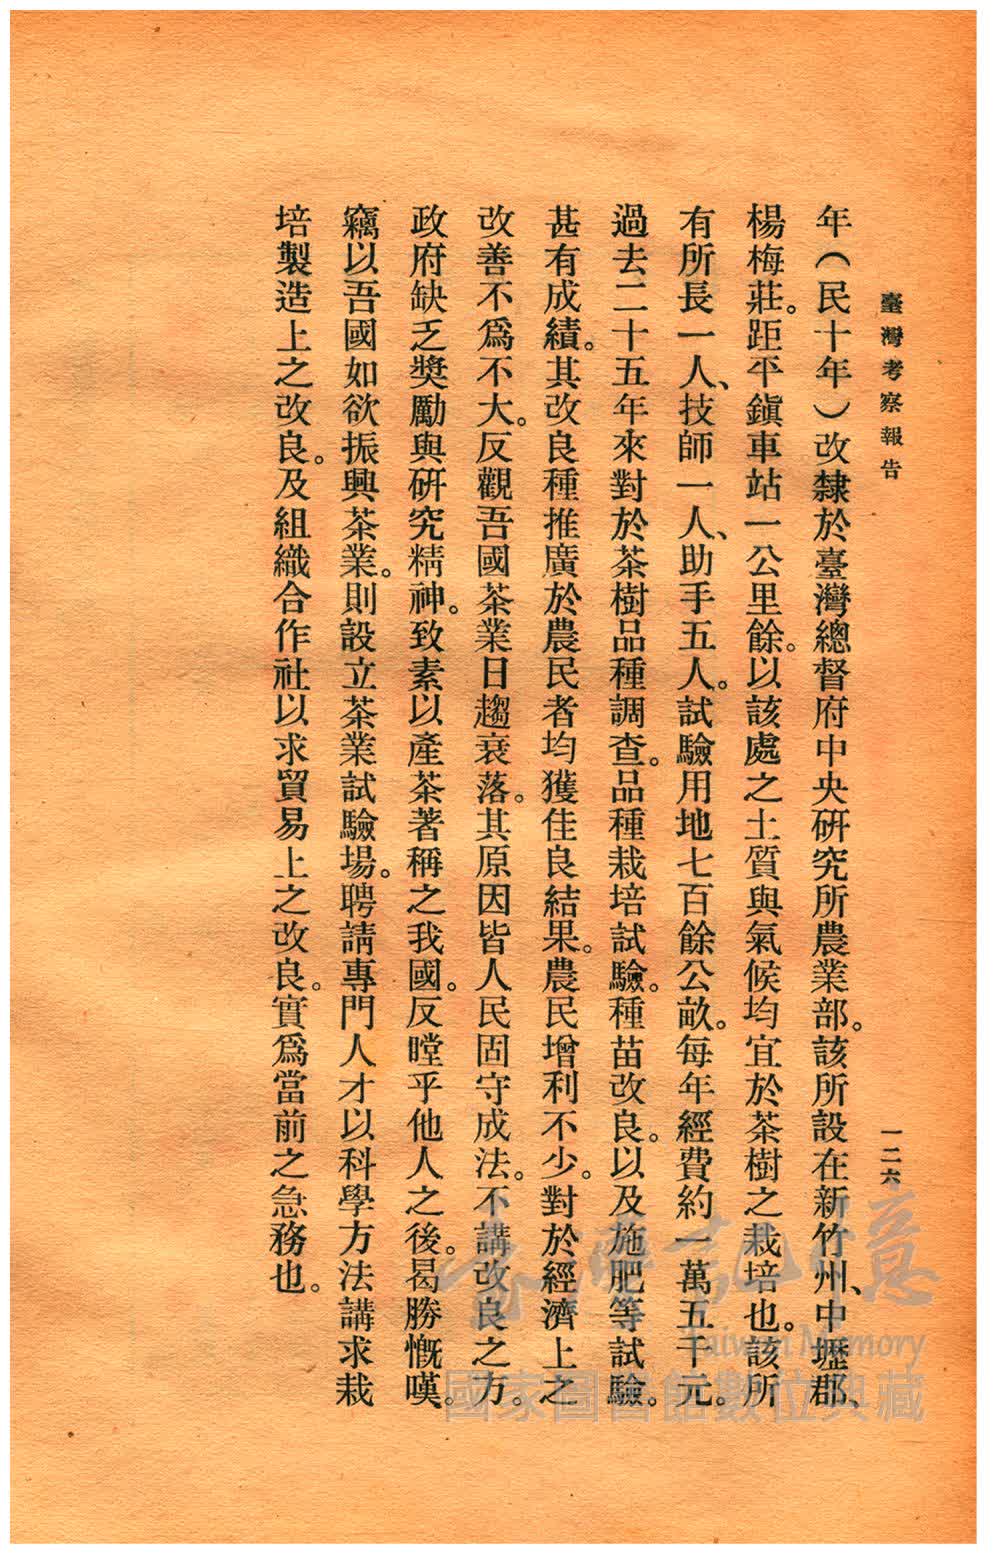 臺灣考察報告
一二六
年(民十年)改隸於臺灣總督府中央硏究所農業部。該所設在新竹州、中壢郡、
楊梅莊。距平鎭車站一公里餘。以該處之土質與氣候均宜於茶樹之栽培也。該所
有所長一人、技師一人、助手五人。試驗用地七百餘公畝。每年經費約一萬五千元。
過去二十五年來對於茶樹品種調查。品種栽培試驗。種苗改良。以及施肥等試驗。
甚有成績。其改良種推廣於農民者均獲佳良結果。農民增利不少。對於經濟上之
改善不爲不大。反觀吾國茶業日趨衰落。其原因皆人民固守成法。不講改良之方。
政府缺乏獎勵與硏究精神。致素以產茶著稱之我國。反瞠乎他人之後。曷勝慨嘆。
竊以吾國如欲振興茶業。則設立茶業試驗場。聘請專門人才以科學方法講求栽
培製造上之改良。及組織合作社以求貿易上之改良。實爲當前之急務也。
臺灣記憶
Taiwan Memory
國家圖書館數位典藏